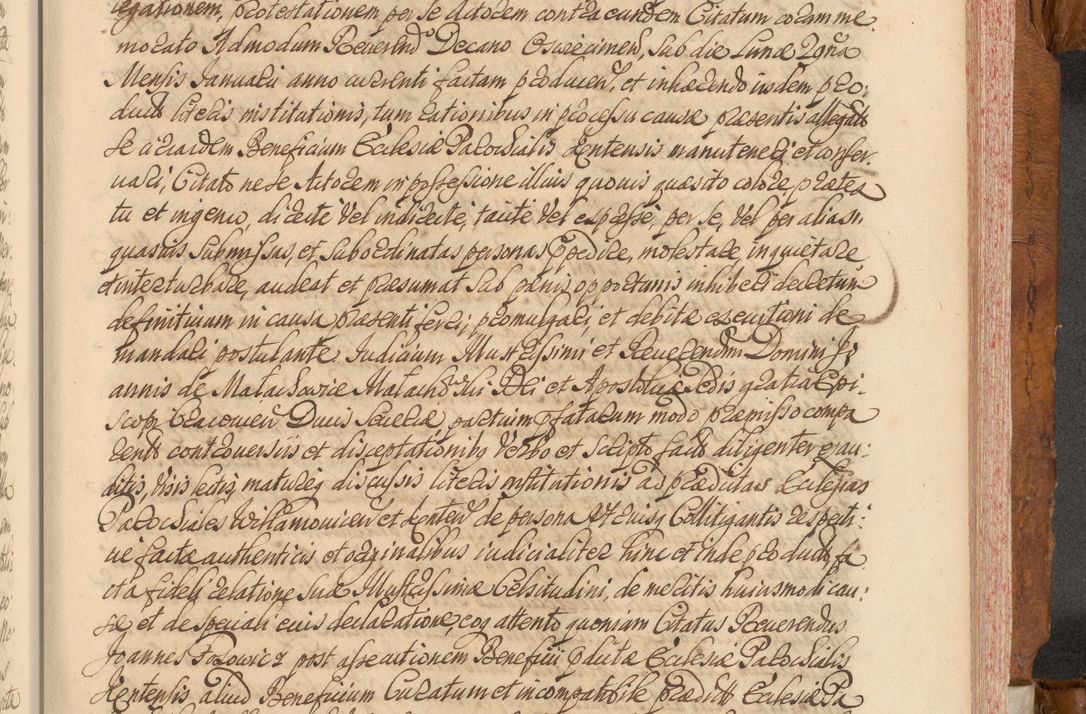 legationem, protestationem per se Actorem contra eundem Citatum coram me
morato Admodum Reverend Decano Osviecimen, sub die Lunæ 29na
Mensis Januarii anno currenti factam producen, et inhærendo iisdem pro:
ductis literis institutionis, tum rationibus in processu causæ præsentis allegatis
se circa idem Beneficium Ecclesiæ Parochialis Lentensis manuteneri et conser:
vari, Citato ne se Actorem in possessione illius quovis quæsito colore prætex
tu et ingenio, directe vel indirecte, tacite vel expresse, per se, vel per alias
quasvis submissas, et subordinatas personas impedire, molestare, inquietare
et interturbare, audeat et præsumat sub pænis opportunis inhiberi decretum
definitivum in causa præsenti ferri, promulgari et debitæ executioni de
mandari postulante. Judicium Illustrissimi et Reverendm Domini Jo
annis de Malachowice Malachowski Dei et Apostolicæ Sedis gratia Epi
scopi Cracovien Ducis Severiæ partium prefatarum modo præmisso compa
rentis controversiis et disceptationibus verbo et scripto factis diligenter exau:
ditis, visis lectis, mature discussis literis institutionis ad prædictas Ecclesias
Parochiales Wilamovicen et Lenten de persona utriusq Collitigantis respecti:
ve factæ authenticis et originalibus iudicialiter hinc et inde productis fa
cta fideli relatione suæ Illustrissimæ Celsitudini, de meritis huiusmodi cau:
sæ et de speciali eius declaratione, eoq attento quoniam Citatus Reverendus
Joannes post assecutionem Beneficii pdictæ Ecclesiæ Parochialis
Lentensis aliud Beneficium Curatum et incompatibile prædictæ Ecclesiæ Pa